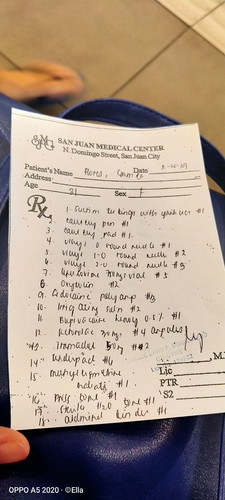 SAN JUAN MEDICAL CENTER
N. Domingo Street, San Juan City
Patient's Name Date
Address:
Age 21 Sex F
Rx
1. Suction tubings with yankauer #1
2. cautery pen #1
3. cautery pad #1
4. vicryl 0 round needle #1
5. vicryl 1-0 round needle #2
6. vicryl 2-0 round needle #3
7. #5
8. oxytocin #2
9. Lidocaine polyamp #3
10. Irrigating saln #2
11. Bupivacaine heavy 0.5% #1
12. Ketorolac 30mg #4 ampules
Tramadol 50mg #2
14. underpad #6
15. methylergometrine
#1
16. PNSS #1
17. Sterile H2O #1
18. abdominal binder #1
Lic
PTR
S2
OPPO A5 2020 · ©Ella